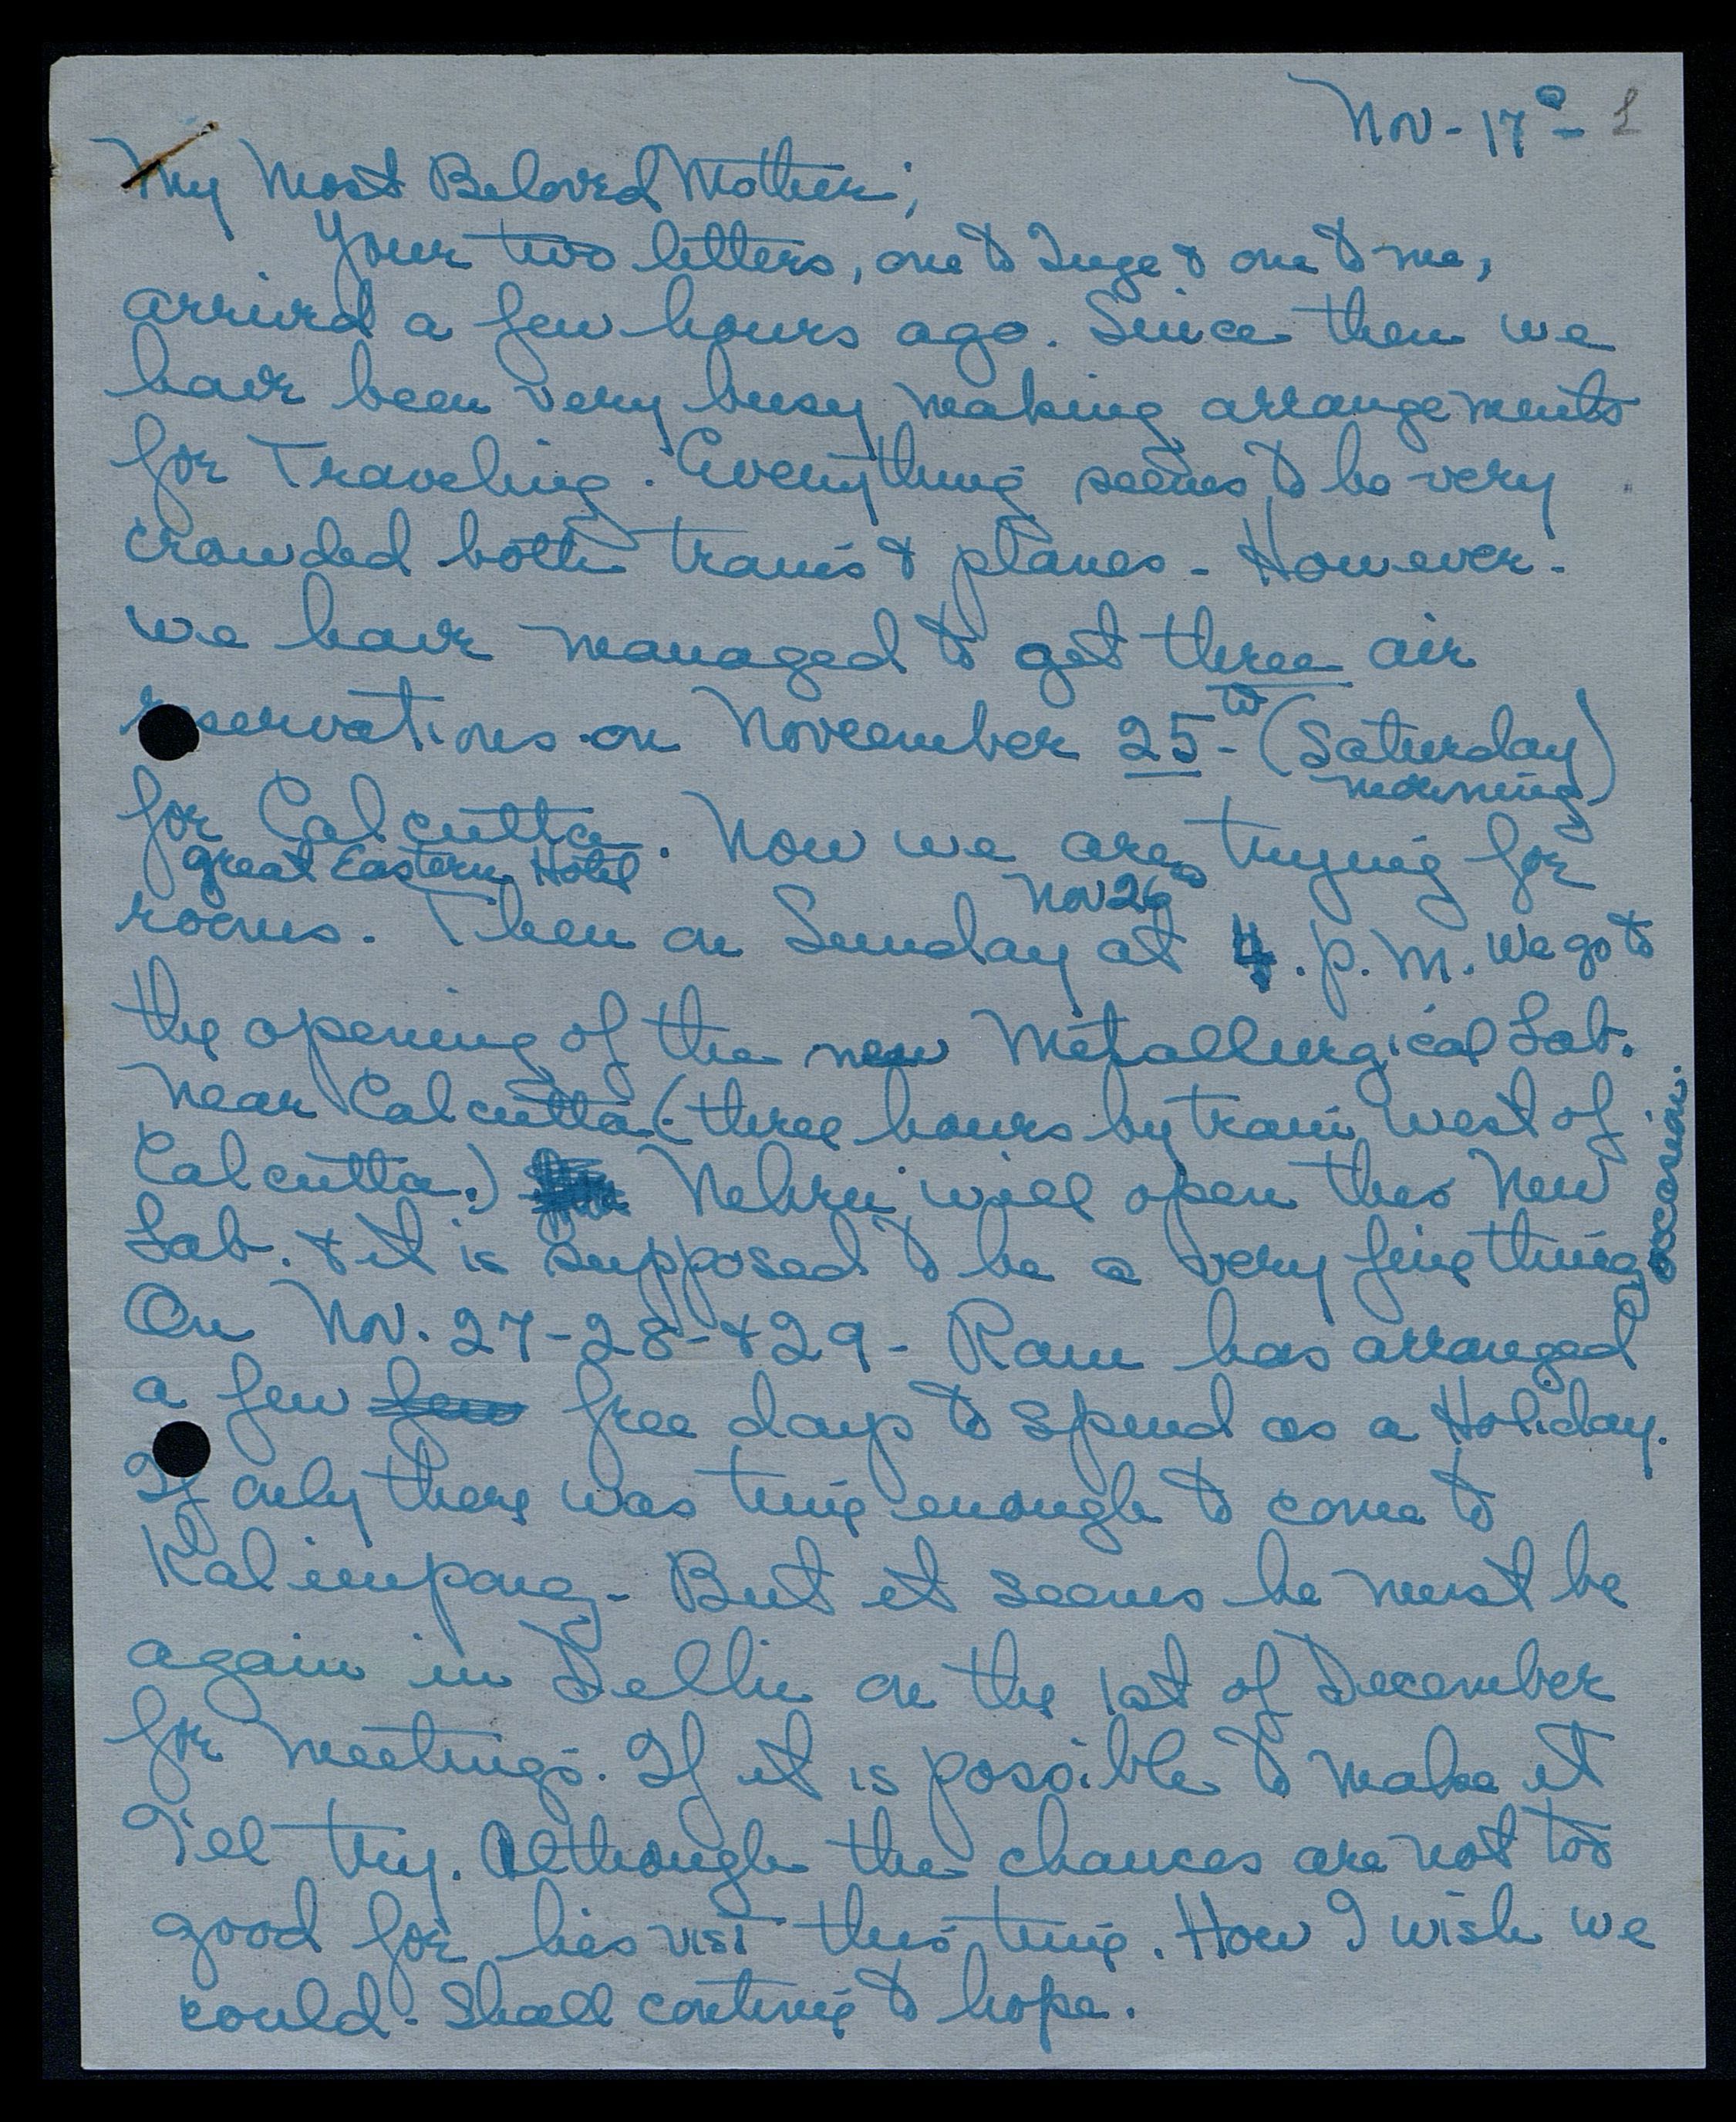 Nov - 17th - 1
My Most Beloved Mother;
Your two letters, one to Inge & one to me,
arrived a few hours ago. Since then we
have been very busy making arrangements
for Traveling. Everything seems to be very
crowded both trains & planes - However -
we have managed to get three air
reservations on November 25th - (Saturday)
morning
for Calcutta. Now we are trying for
Great Eastern Hotel
Nov 26th
rooms. Then on Sunday at 4. p.m. we go to
the opening of the new Metallurgical Lab.
near Calcutta (three hours by train west of
Calcutta.) Nehru will open this New
Lab. & it is supposed to be a very fine thing
occasion.
On Nov. 27-28-&29 - Ram has arranged
a few few free days to spend as a Holiday.
If only there was time enough to come to
Kalimpong - But it seems he must be
again in Delhi on the 1st of December
for meetings. If it is possible to make it
I'll try. Although the chances are not too
good for his visi this time. How I wish we
could - Shall continue to hope.